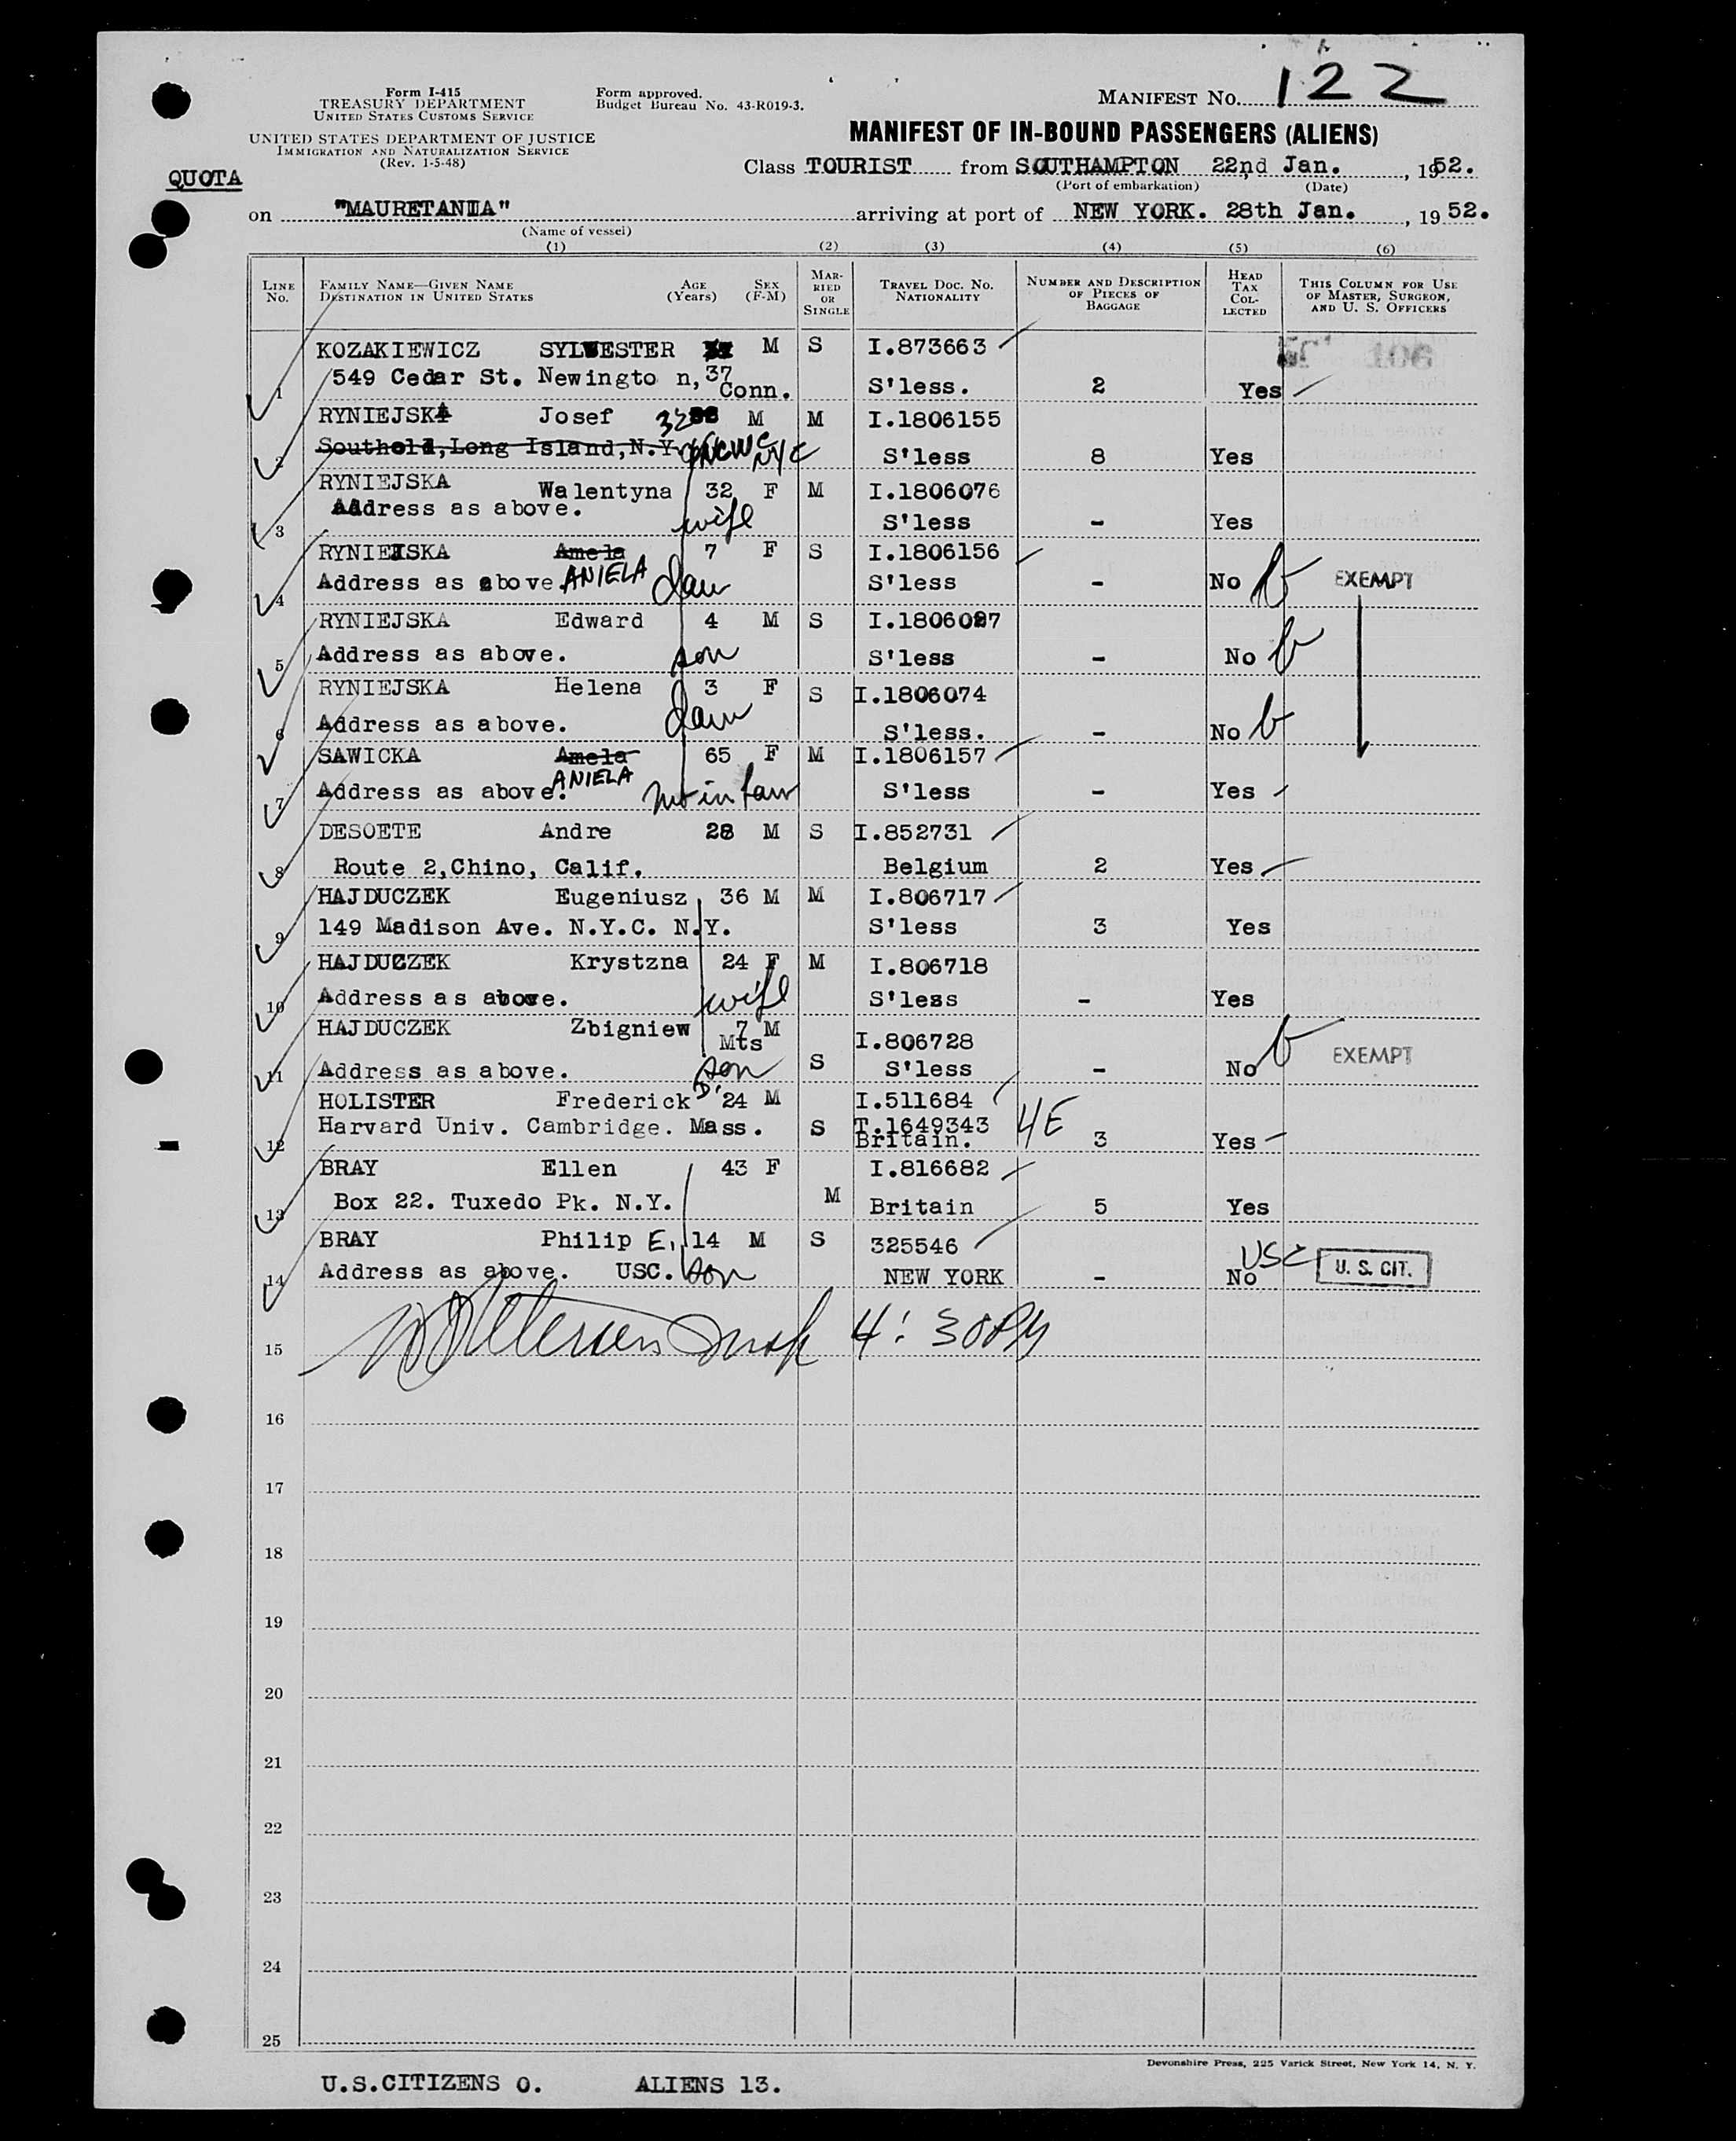 MANIFEST NO. 122
Form I-415
TREASURY DEPARTMENT
UNITED STATES CUSTOMS SERVICE
UNITED STATES DEPARTMENT OF JUSTICE
IMMIGRATION AND NATURALIZATION SERVICE
(Rev. 1-5-48)
Form approved.
Budget Bureau No. 43-R019-3.
MANIFEST OF IN-BOUND PASSENGERS (ALIENS)
QUOTA
Class TOURIST from SOUTHAMPTON 22nd Jan., 1952.
(Port of embarkation) (Date)
on "MAURETANIA" arriving at port of NEW YORK. 28th Jan., 1952.
(Name of vessel)
(1) (2) (3) (4) (5) (6)
LINE No. FAMILY NAME—GIVEN NAME DESTINATION IN UNITED STATES AGE (Years) SEX (F-M) MARRIED OR SINGLE TRAVEL DOC. NO. NATIONALITY NUMBER AND DESCRIPTION OF PIECES OF BAGGAGE HEAD TAX COLLECTED THIS COLUMN FOR USE OF MASTER, SURGEON, AND U. S. OFFICERS
KOZAKIEWICZ SYLWESTER M S I.873663
1 549 Cedar St. Newingto n, 37 Conn. S'less. 2 Yes
RYNIEJSKA Josef 32 M M I.1806155
2 Southold, Long Island, N.Y. NCWC NYC S'less 8 Yes
RYNIEJSKA Walentyna 32 F M I.1806076
3 Address as above. wife S'less - Yes
RYNIEJSKA Amela 7 F S I.1806156
4 Address as above. ANIELA dau S'less - No EXEMPT
RYNIEJSKA Edward 4 M S I.1806027
5 Address as above. son S'less - No
RYNIEJSKA Helena 3 F S I.1806074
6 Address as above. dau S'less. - No
SAWICKA Amela 65 F M I.1806157
7 Address as above. ANIELA mo in law S'less - Yes
DESOETE Andre 28 M S I.852731
8 Route 2, Chino, Calif. Belgium 2 Yes
HAJDUCZEK Eugeniusz 36 M M I.806717
9 149 Madison Ave. N.Y.C. N.Y. S'less 3 Yes
HAJDUCZEK Krystzna 24 F M I.806718
10 Address as above. wife S'less - Yes
HAJDUCZEK Zbigniew 7 Mts M I.806728
11 Address as above. son S S'less - No EXEMPT
HOLISTER Frederick D. 24 M I.511684
12 Harvard Univ. Cambridge. Mass. S T.1649343 Britain. 4E 3 Yes
BRAY Ellen 43 F I.816682
13 Box 22. Tuxedo Pk. N.Y. M Britain 5 Yes
BRAY Philip E. 14 M S 325546
14 Address as above. USC. son NEW YORK - No USC U. S. CIT.
15 Insp 4:30PM
16
17
18
19
20
21
22
23
24
25
Devonshire Press, 225 Varick Street, New York 14, N. Y.
U.S.CITIZENS 0. ALIENS 13.